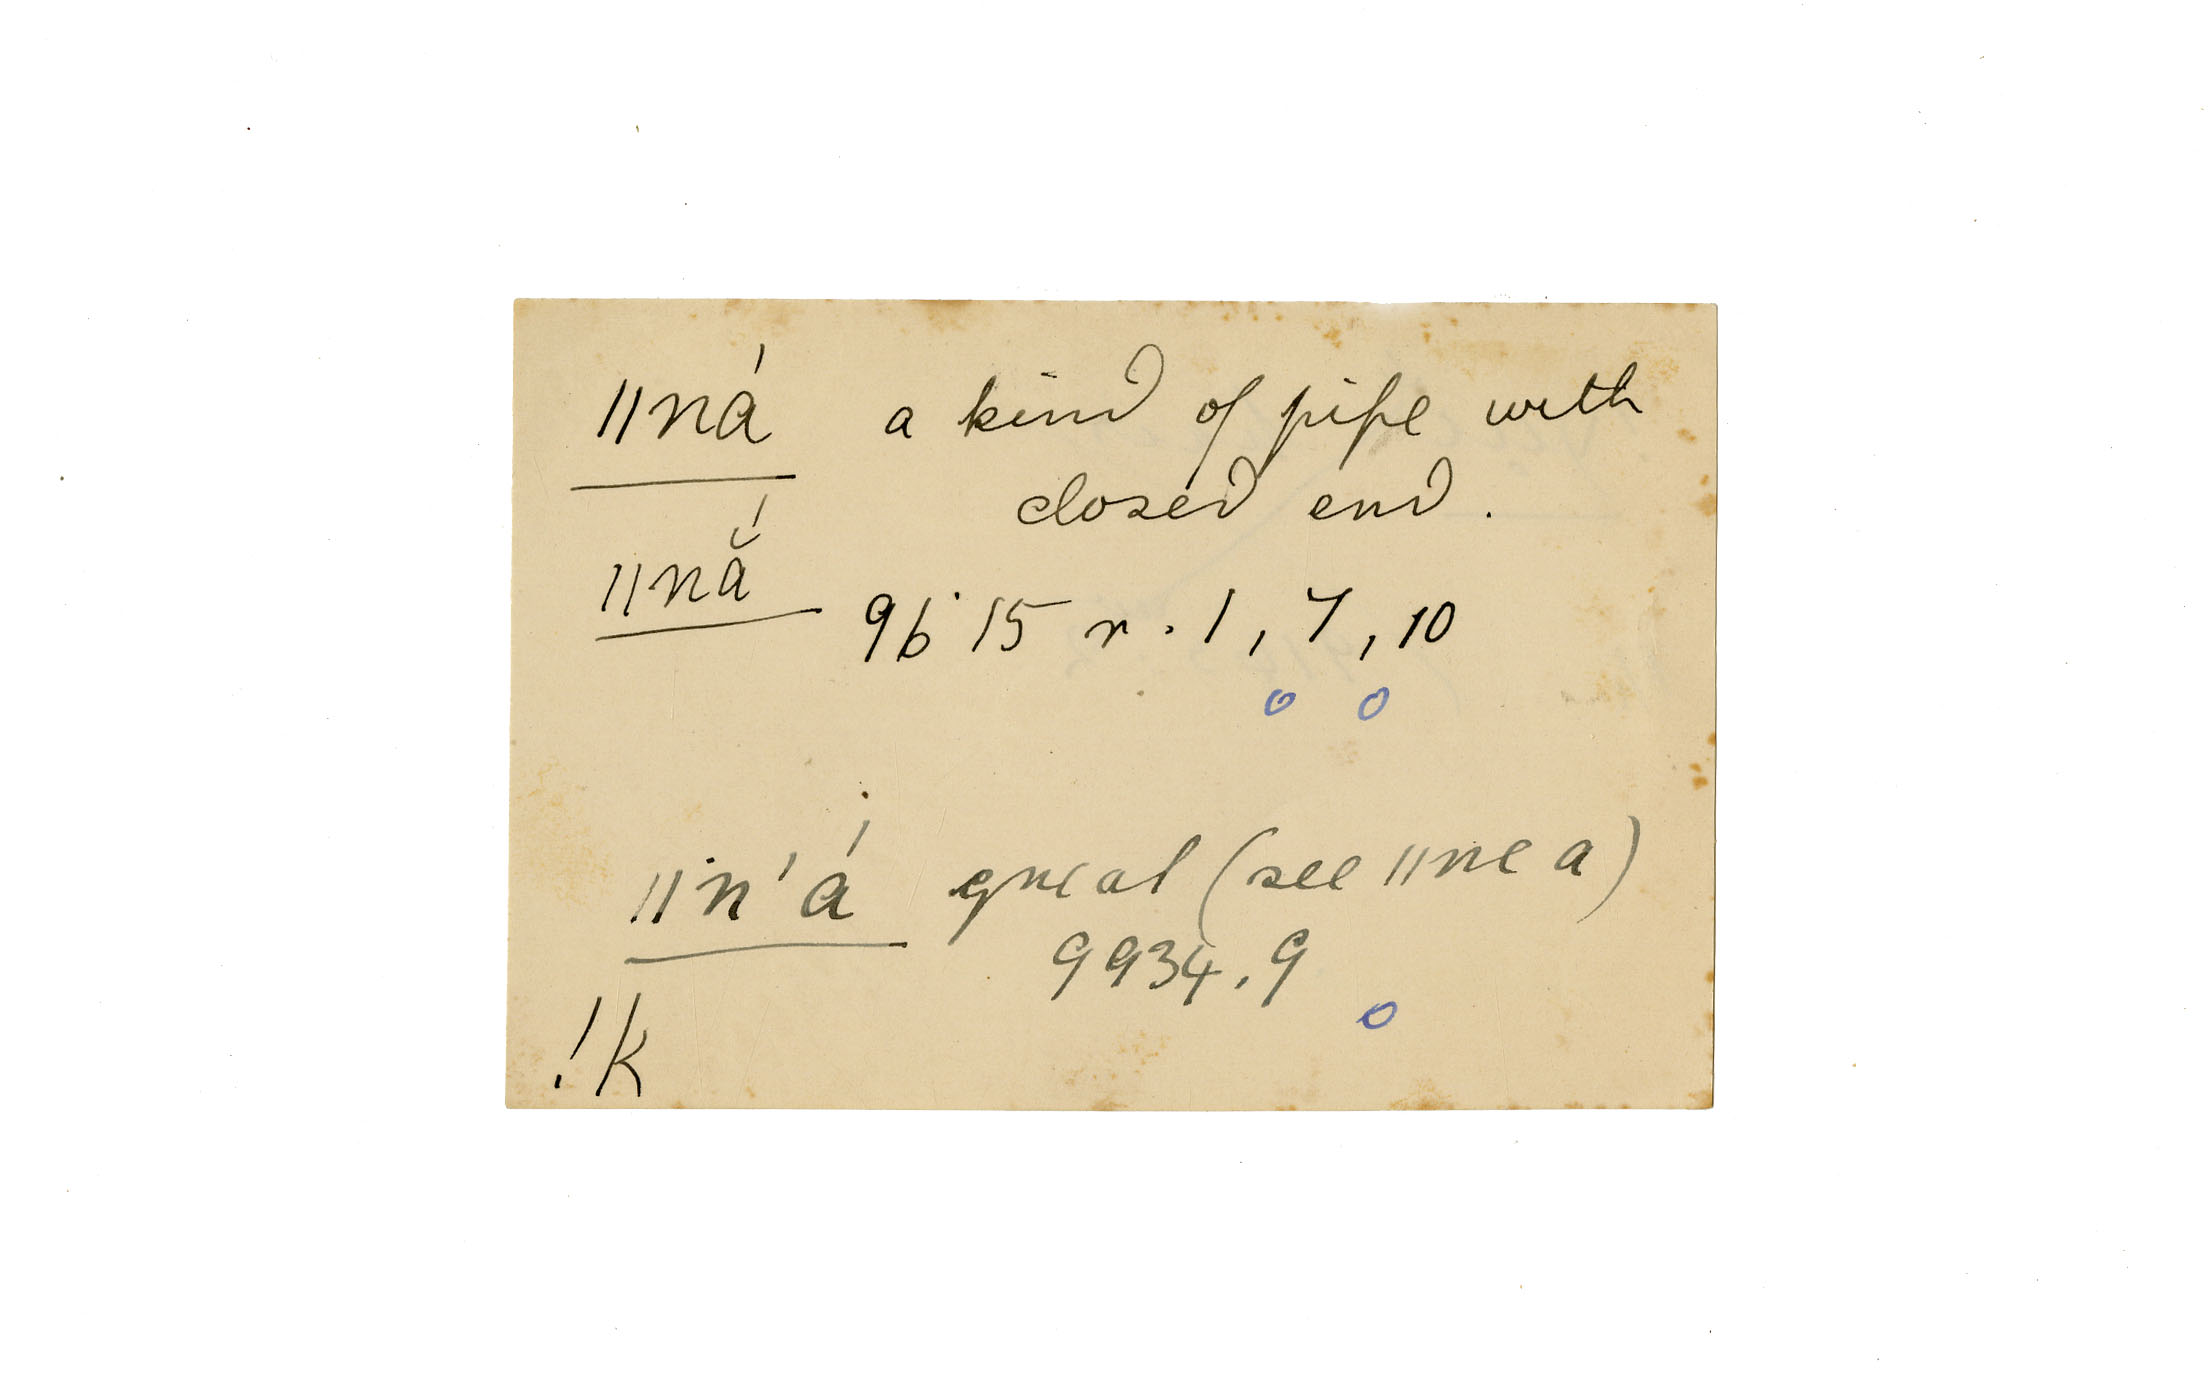 ǁná a kind of pipe with
closed end.
ǁnắ
9615 r. 1, 7, 10
ǁn'á great (see ǁne a)
9934.9
!k